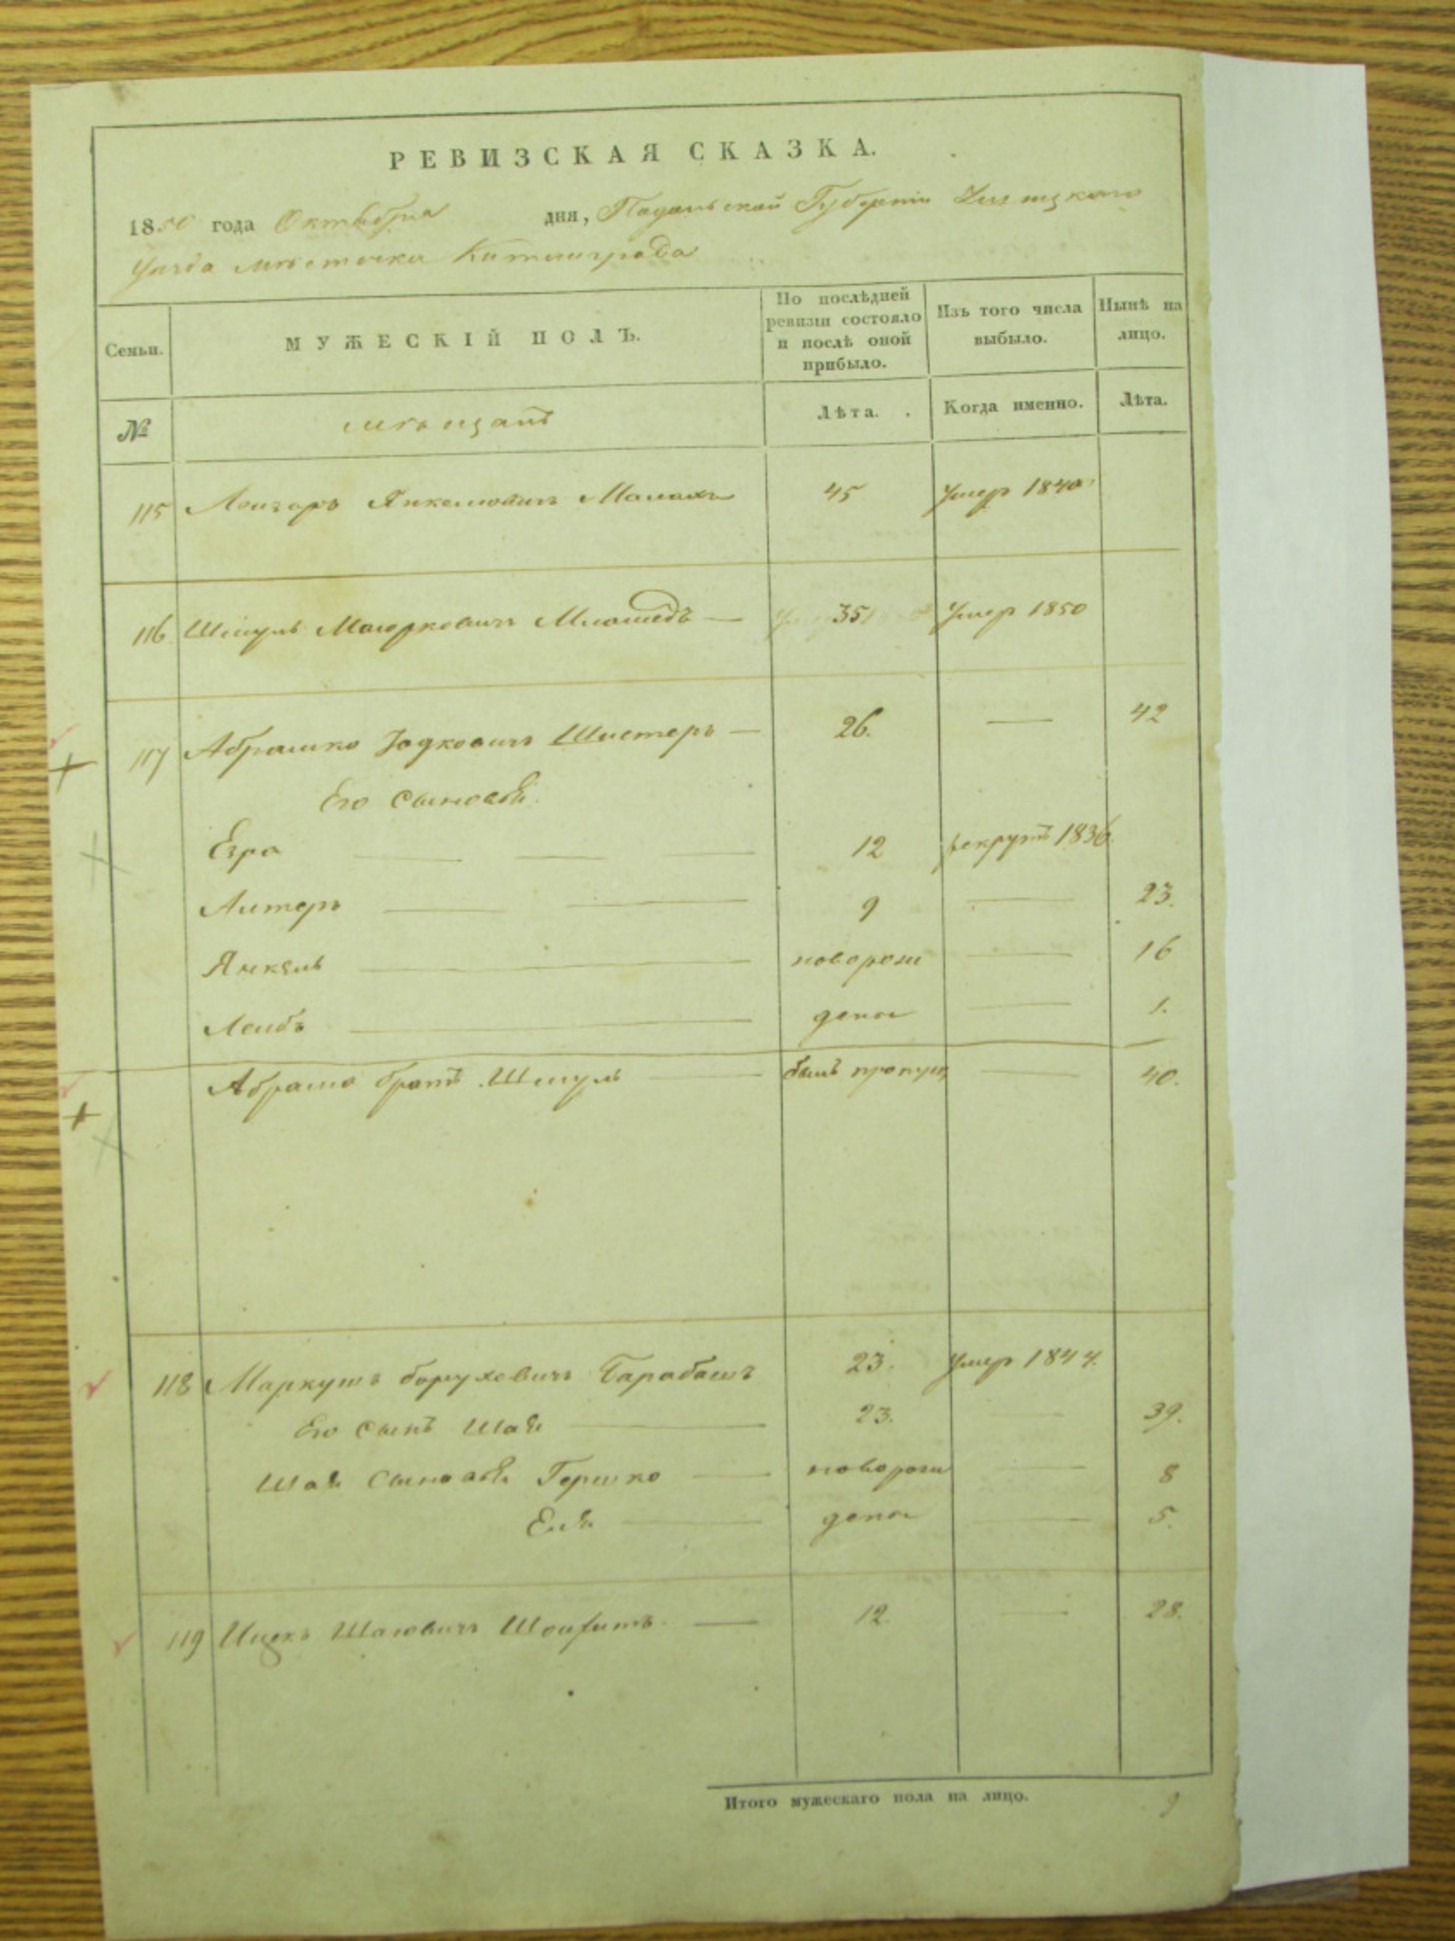 РЕВИЗСКАЯ СКАЗКА.
1850 года Октября дня, Подольской Губерніи
Уѣзда мѣстечка Китайграда
Семьи.
МУЖЕСКІЙ ПОЛЪ.
По послѣдней ревизіи состояло и послѣ оной прибыло.
Изъ того числа выбыло.
Нынѣ на лицо.
№ мѣщанъ Лѣта. Когда именно. Лѣта.
115 Лейзоръ Янкелювичъ 45 Умер 1840
116 Шмуль 35 Умер 1850
117 Абрамко Іодковичъ Шустеръ — 26. — 42
Его сыновья
Езра 12 рекрутъ 1836
Алтеръ 9 — 23.
Янкель новорож — 16
Лейбъ денъ — 1.
Абрама братъ Шмуль былъ пропущ — 40.
118 Маркушъ Боруховичъ Барабашъ 23. Умер 1844.
Его сынъ Шая 23. — 39.
Шая сыновья Гершко новорож — 8
Еля денъ — 5.
119 Ицекъ Шаювичъ 12. — 28.
Итого мужескаго пола на лицо. 9